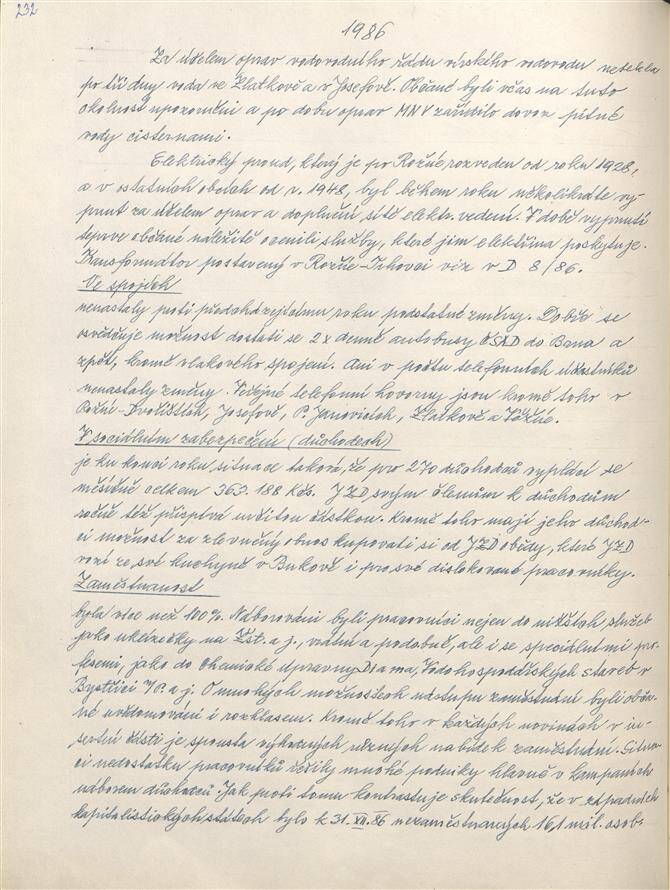 232
1986
Za účelem oprav vodovodního řádu vírského vodovodu netekla
po tři dny voda ve Zlatkově a v Josefově. Občané byli včas na tuto
okolnost upozorněni a po dobu oprav MNV zařídilo dovoz pitné
vody cisternami.
Elektrický proud, který je po Rožné rozveden od roku 1928,
a v ostatních obcích od r. 1948, byl během roku několikráte vy-
pnut za účelem oprav a doplnění sítě elektr. vedení. V době vypnutí
teprve občané náležitě ocenili služby, které jim elektřina poskytuje.
Transformátor postavený v Rožné-Jihovci viz v D 8/86.
Ve spojích
nenastaly proti předcházejícímu roku podstatné změny. Dobře se
osvědčuje možnost dostati se 2x denně autobusy ČSAD do Brna a
zpět, kromě vlakového spojení. Ani v počtu telefonních účastníků
nenastaly změny. Veřejné telefonní hovorny jsou kromě toho v
Rožné-Dvolištích, Josefově, P. Janovicích, Zlatkově a Věžné.
V sociálním zabezpečení (důchodech)
je ku konci roku situace taková, že pro 270 důchodců vyplácí se
měsíčně celkem 363.188 Kčs. JZD svým členům k důchodům
ročně též přispívá určitou částkou. Kromě toho mají jeho důchod-
ci možnost za zlevněný obnos kupovati si od JZD obědy, které JZD
vozí ze své kuchyně v Bukově i pro své dislokované pracovníky.
Zaměstnanost
byla více než 100%. Náborováni byli pracovníci nejen do nižších služeb
jako uklízečky na Zst. a j., vrátní a podobně, ale i se speciálními pro-
fesemi, jako do Chemické úpravny Diama, Vodohospodářských staveb v
Bystřici n/P. a j. O mnohých možnostech nástupu zaměstnání byli obča-
né uvědomováni i rozhlasem. Kromě toho v každých novinách v in-
sertní části je spousta výhodných různých nabídek zaměstnání. Situa-
ci nedostatku pracovníků řešily mnohé podniky hlavně v kampaních
náborem důchodců. Jak proti tomu kontrastuje skutečnost, že v západních
kapitalistických státech bylo k 31. XII. 86 nezaměstnaných 16,1 mil. osob.